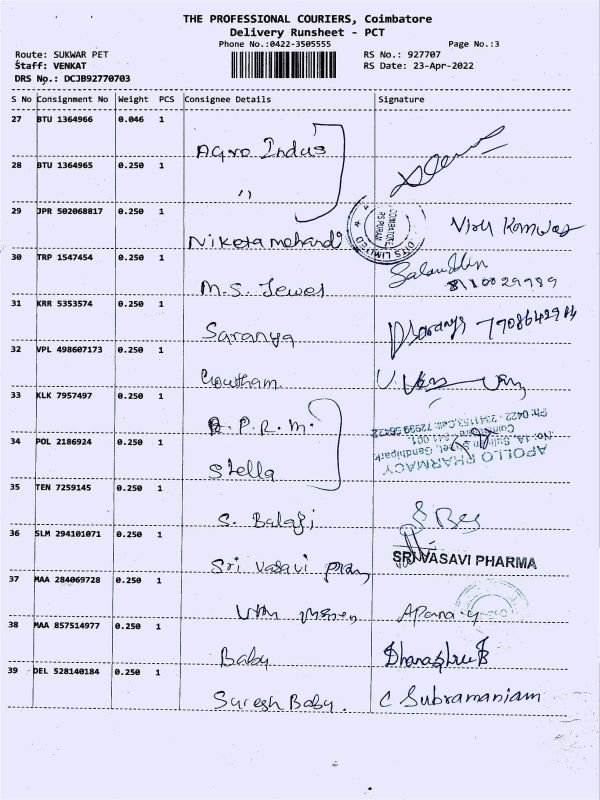 THE PROFESSIONAL COURIERS, Coimbatore
Delivery Runsheet - PCT
Phone No.:0422-3505555 Page No.:3
Route: SUKWAR PET RS No.: 927707
Staff: VENKAT RS Date: 23-Apr-2022
DRS No.: DCJB92770703
S No Consignment No Weight PCS Consignee Details Signature
27 BTU 1364966 0.046 1
Agro Indus
28 BTU 1364965 0.250 1
"
29 JPR 502068817 0.250 1
Niketa
COIMBATORE
RS PURAM
LIMITED
30 TRP 1547454 0.250 1
M.S. Jewel Salauddin
8110029789
31 KRR 5353574 0.250 1
Saranya
32 VPL 498607173 0.250 1
Goutham
33 KLK 7957497 0.250 1
P.R.M.
34 POL 2186924 0.250 1
Stella
APOLLO PHARMACY
35 TEN 7259145 0.250 1
S. Balaji
36 SLM 294101071 0.250 1
Sri Vasavi SRI VASAVI PHARMA
37 MAA 284069728 0.250 1
38 MAA 857514977 0.250 1
Baby
39 DEL 528140184 0.250 1
Suresh Baby. C Subramaniam